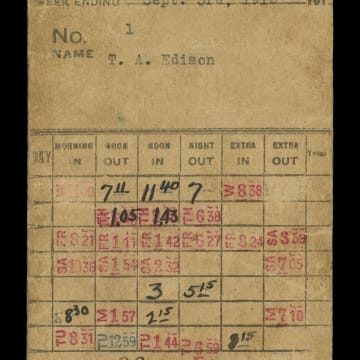 WEEK ENDING Sept. 3rd, 1912 191
No. 1
NAME T. A. Edison
DAY MORNING IN NOON OUT NOON IN NIGHT OUT EXTRA IN EXTRA OUT Total
7 11 40 7 W 8 38
TH 1.05 TH 1.43 TH 6 38
FR 8 21 FR 1 FR 1 42 FR 6 27 FR 8 24 SA 3 59
SA 10 38 SA 1 54 SA 2 32 SA 7 05
3 5 15
8 30 M 1 57 2 15 M 7 10
TU 8 31 TU 12 59 TU 1 44 TU 6 59 8 15